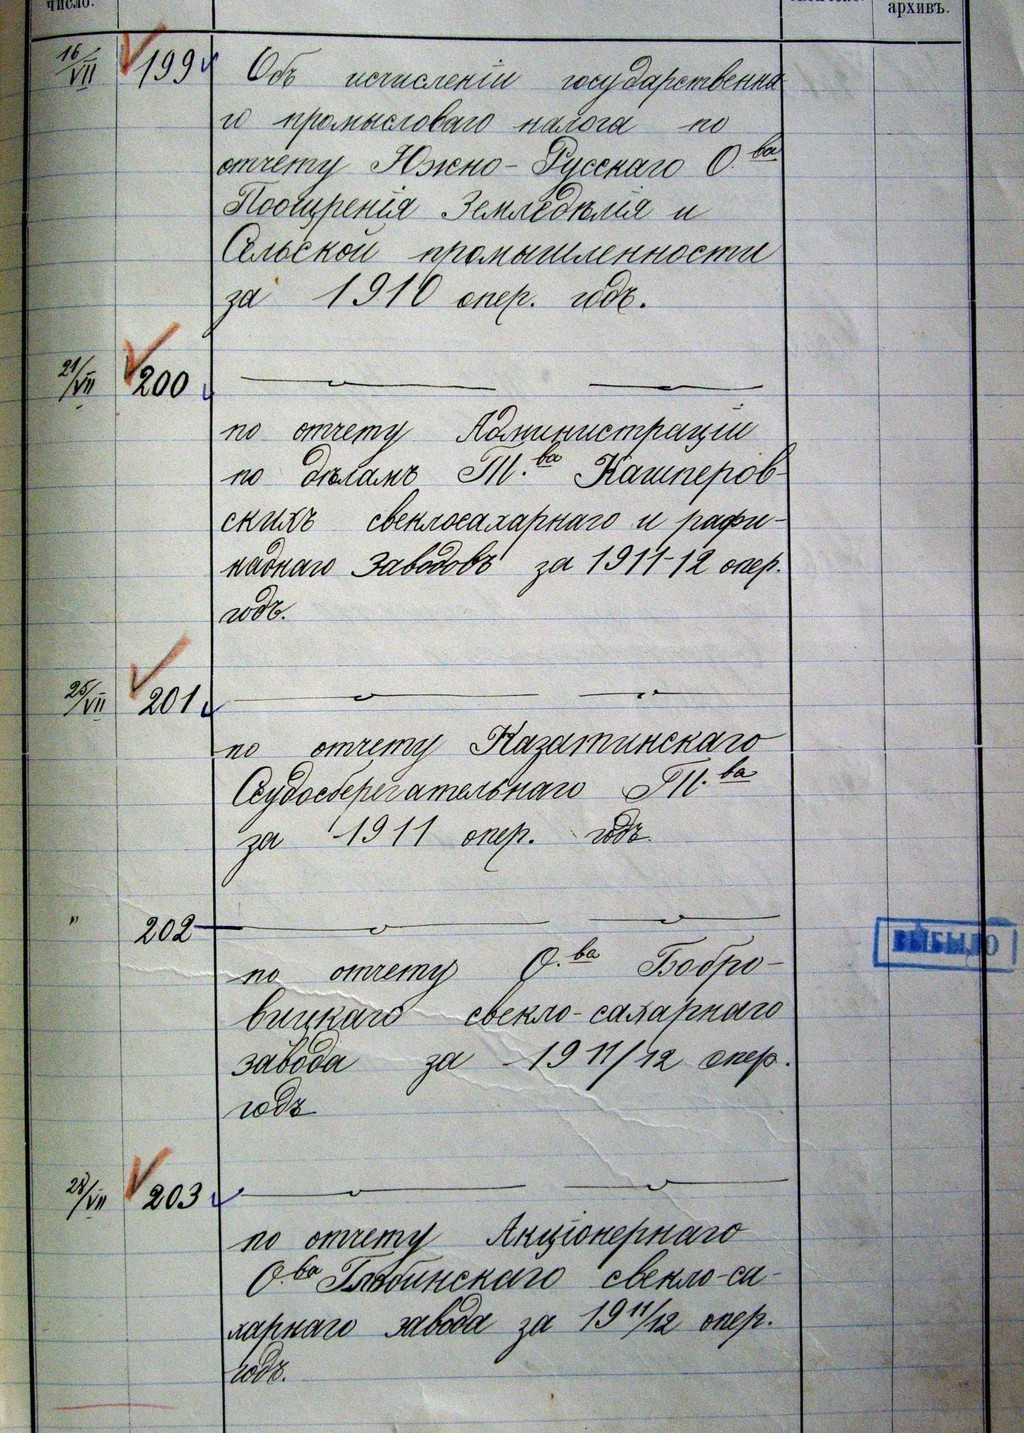 число.
архивъ.
16/VII 199 Объ исчисленіи государственна-
го промысловаго налога по
отчету Южно-Русскаго О.ва
Поощренія Земледѣлія и
Сельской промышленности
за 1910 опер. годъ.
21/VII 200
по отчету Администраціи
по дѣламъ Т.ва Кашперов-
скихъ свеклосахарнаго и рафи-
наднаго заводовъ за 1911-12 опер.
годъ.
25/VII 201
по отчету Казатинскаго
Ссудосберегательнаго Т.ва
за 1911 опер. годъ.
" 202
по отчету О.ва Бобро-
вицкаго свекло-сахарнаго
завода за 1911/12 опер.
годъ
ВЫБЫЛО
28/VII 203
по отчету Акціонернаго
О.ва Глобинскаго свекло-са-
харнаго завода за 1911/12 опер.
годъ.